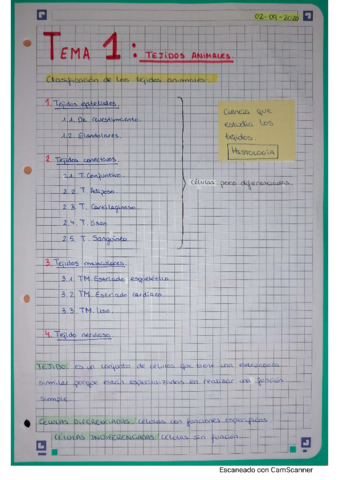 02-09-2020
TEMA 1: TEJIDOS ANIMALES.
Clasificación de los tejidos animales.
1. Tejidos epiteliales.
1.1. De revestimiento.
1.2. Glandulares.
Ciencia que
estudia los
tejidos.
HISTOLOGÍA
2. Tejidos conectivos.
2.1. T. Conjuntivo.
2.2. T. Adiposo.
2.3. T. Cartilaginoso.
2.4. T. Óseo.
2.5. T. Sanguíneo.
Células poco diferenciadas.
3. Tejidos musculares.
3.1. TM. Estriado esquelético.
3.2. TM. Estriado cardíaco.
3.3. TM. Liso.
4. Tejido nervioso.
TEJIDO: es un conjunto de células que tiene una estructura
similar porque están especializadas en realizar una función
simple.
CÉLULAS DIFERENCIADAS: células con funciones específicas.
CÉLULAS INDIFERENCIADAS: células sin función.
Escaneado con CamScanner